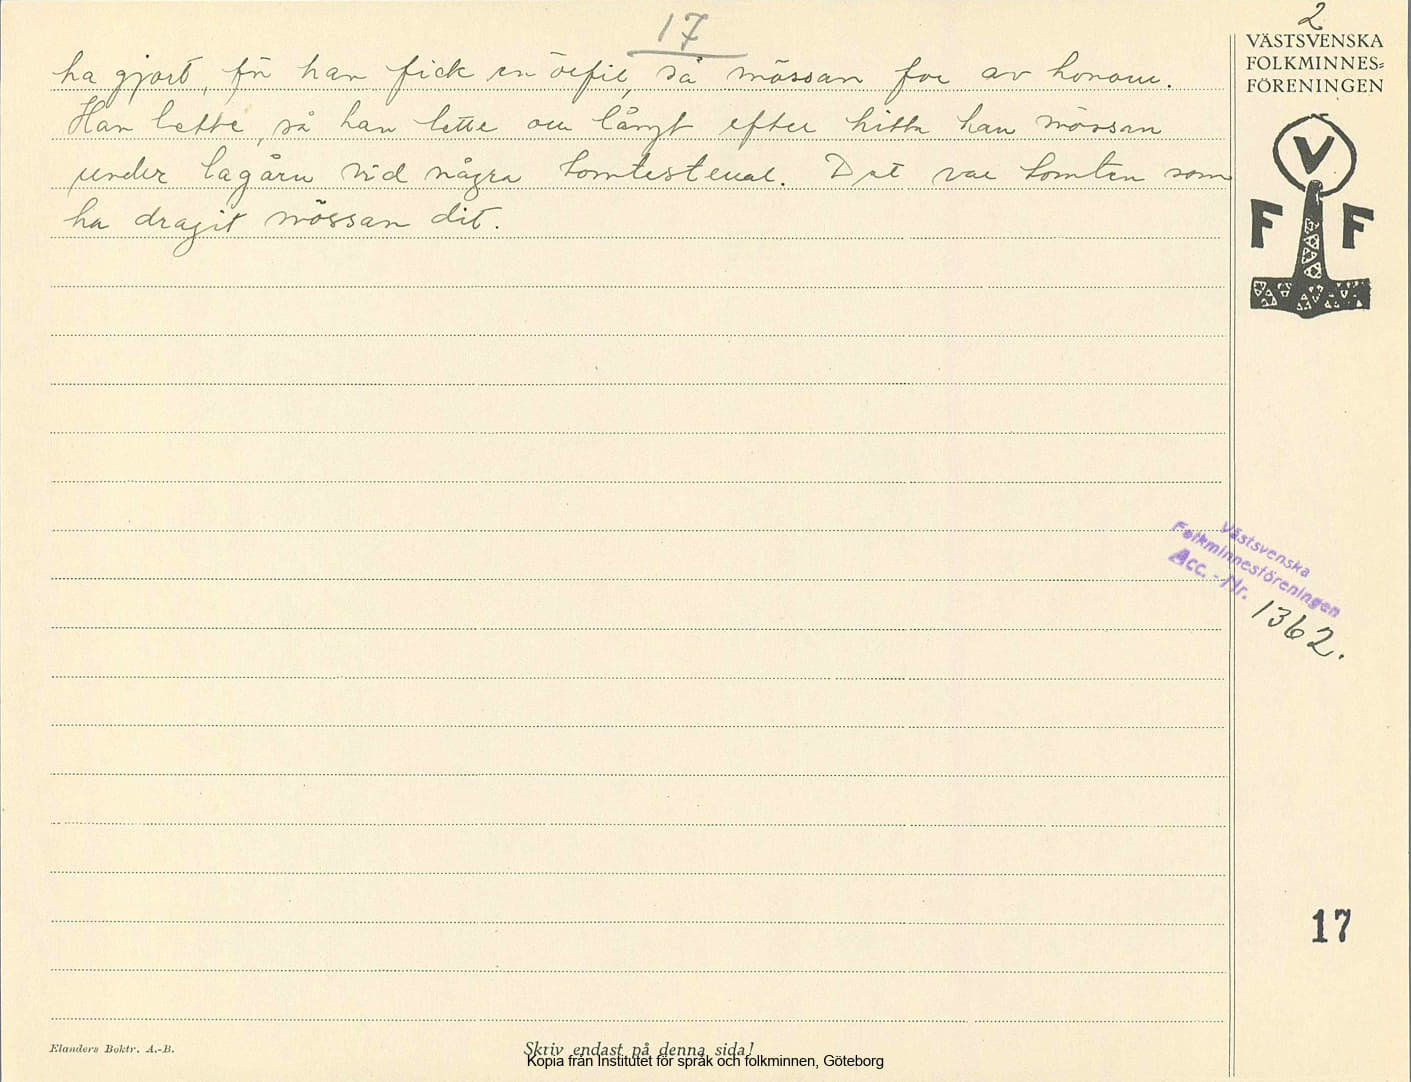 17
2
VÄSTSVENSKA
FOLKMINNES=
FÖRENINGEN
V
F F
ha gjort för han fick en örfil, så mössan for av honom.
Han lette, så han lette om långt efter hitta han mössan
under lagårn vid några tomtestenar. Det var tomten som
ha dragit mössan dit.
Västsvenska
Folkminnesföreningen
Acc. - Nr. 1362.
17
Elanders Boktr. A.-B.
Skriv endast på denna sida!
Kopia från Institutet för språk och folkminnen, Göteborg